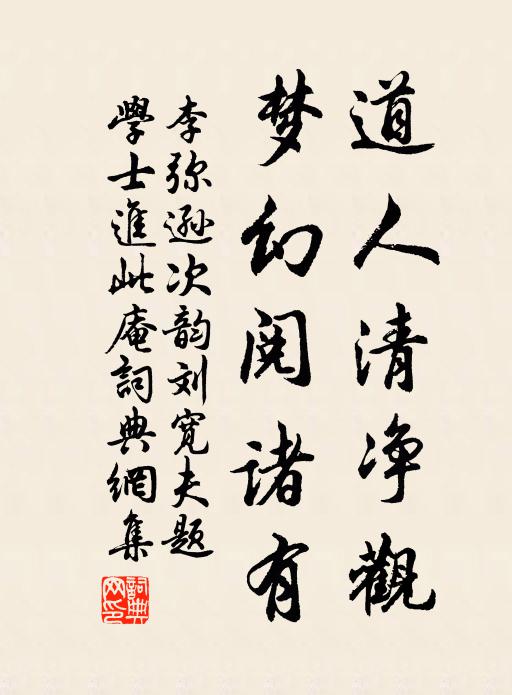 道人清净觀
梦幻阅诸有
李弥逊次韵刘宽夫题
學士進此庵詞典網集
詞典网印